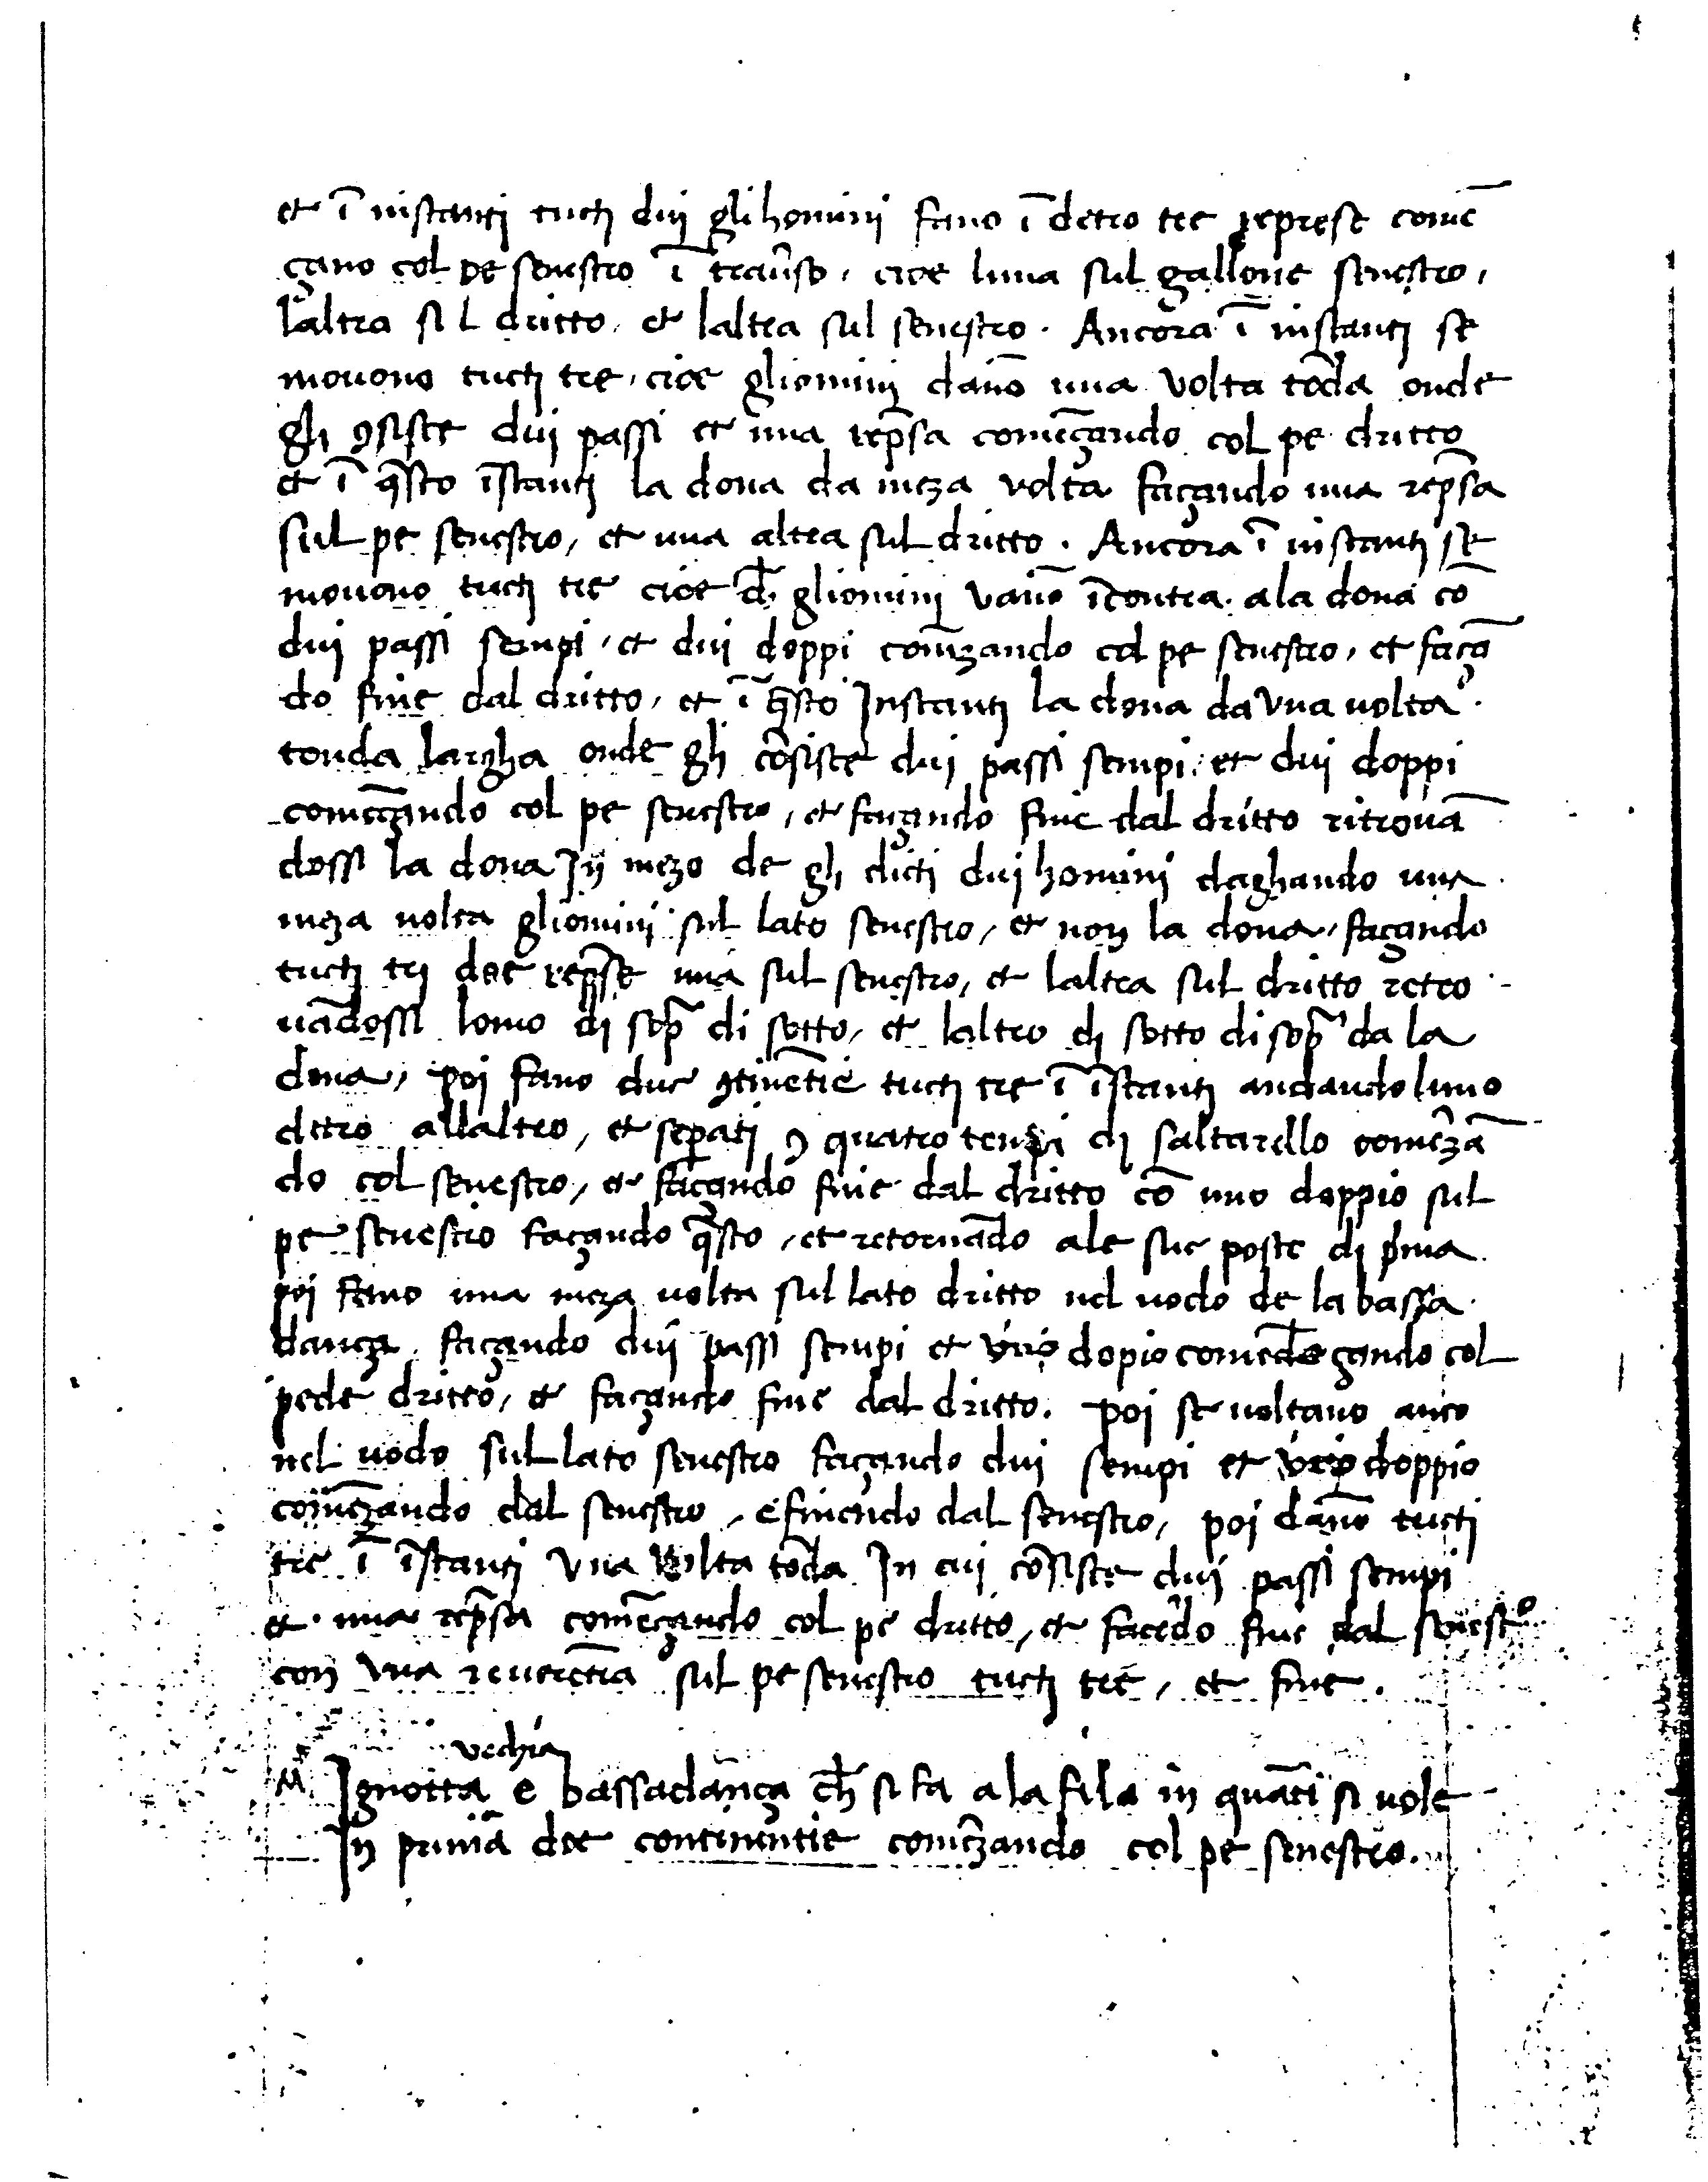 et ī instanti tucti dui gli homini fano ī detro tre represe comē
çano col pe senestro ī trav̄so, cioe luna sul gallone senestro,
laltra sul dritto, et laltra sul senestro. Ancora ī instanti se
movono tucti tre, cioe gliomini danō una volta tōda onde
gli ꝯsiste dui passi et una rep̄sa comēçando col pe dritto
et ī q̄sto īstanti la dona da meza volta façando una rep̄sa
sul pe senestro, et una altra sul dritto. Ancora ī instanti se
movono tucti tre cioe ch̄ gliomini vanō īcontra ala dona cō
dui passi sempi, et dui doppi com̄zando col pe senestro, et façā
do fine dal dritto, et ī q̄sto Instanti la dona da una volta
tonda largha onde gli cōsiste dui passi sempi, et dui doppi
comēçando col pe senestro, et façando fine dal dritto ritrovā
dossi la dona In mezo de gli dicti dui homini daghando una
meza volta gliomini sul lato senestro, et non la dona, façando
tucti tri doe rep̄se una sul senestro, et laltra sul dritto retro
vādossi lomo di sop̄ di sotto, et laltro di sotto di sop̄ da la
dona, poi fano due ꝯtinētie tucti tre ī īstanti andando luno
detro allaltro, et seꝑati ꝯ quatro tempi di saltarello comēzā
do col senestro, et façando fine dal dritto cō uno doppio sul
pe senestro façando q̄sto, et retornādo ale sue poste di p̄ma
poi fano una meza volta sul lato dritto nel modo de la bassa
dança façando dui passi sempi et uno dopio comēçando col
pede dritto, et façando fine dal dritto. poi se voltano anco
nel modo sul lato senestro façando dui sempi et uno doppio
com̄zando dal senestro, e finendo dal senestro, poi danō tucti
tre ī īstanti una volta tōda In cui cōsiste dui passi sempi
et una rep̄sa comēçando col pe dritto, et facēdo fine dal senestro
con una reverētia sul pe senestro tucti tre, et fine.
vechia
M Ignotta e bassadānça ch̄ si fa a la fila in quāti si vole
In primā doe continentie com̄zando col pe senestro.